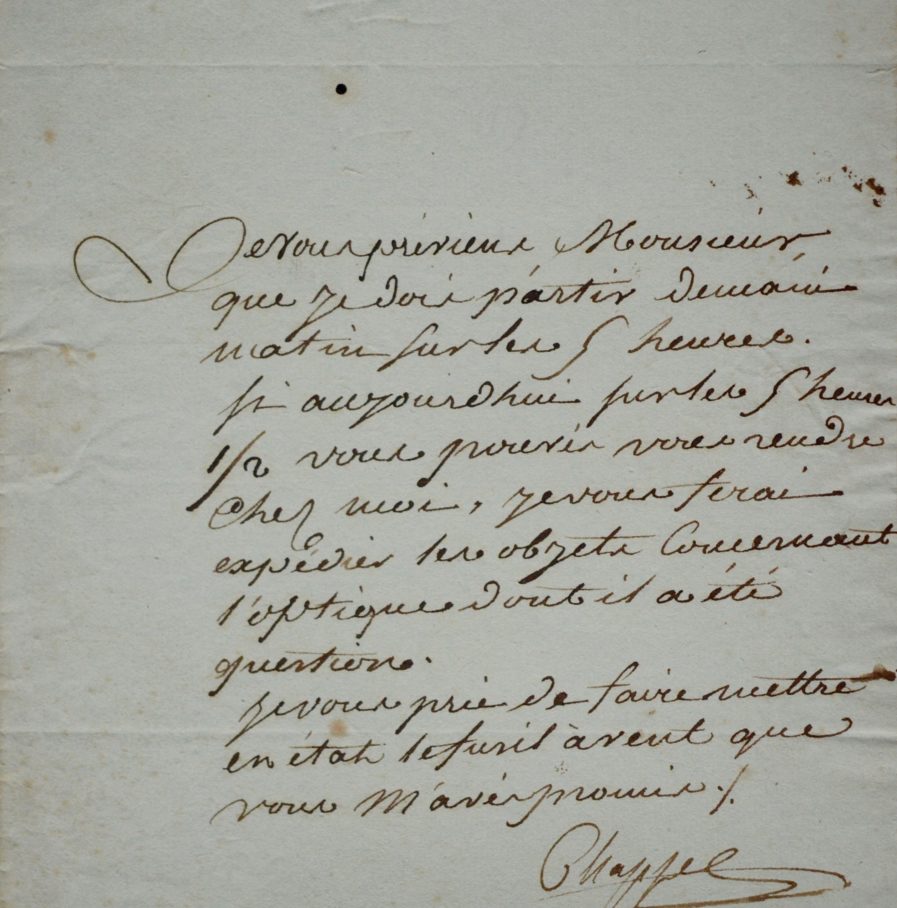 Je vous préviens Monsieur
que je dois partir demain
matin sur les 5 heures.
si aujourdhui sur les 5 heures
1/2 vous pouvés vous rendre
Chez moi, je vous ferai
expédier les objets Concernant
l'optique dont il a été
question.
je vous prie de faire mettre
en état le fusil à vent que
vous m'avés promis ./.
Chappe